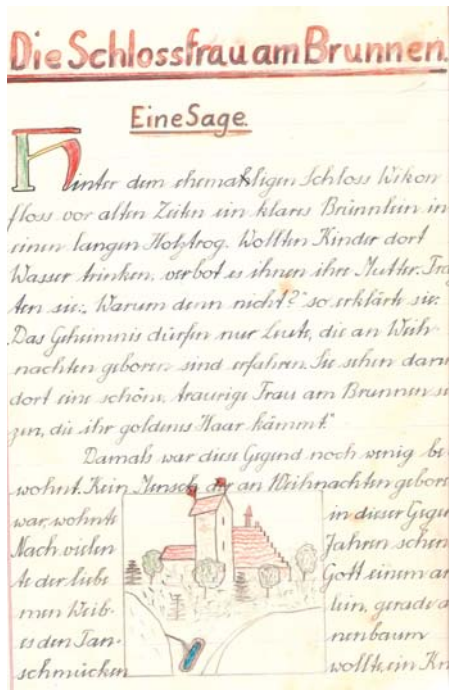 Die Schlossfrau am Brunnen.
Eine Sage.
Hinter dem ehemaligen Schloss Wikon
floss vor alten Zeiten ein klares Brünnlein in
einen langen Holztrog. Wollten Kinder dort
Wasser trinken, verbot es ihnen ihre Mutter. Fra
ten sie: „Warum denn nicht?" so erklärte sie:
Das Geheimnis dürfen nur Leute, die an Weih-
nachten geboren sind erfahren. Sie sehen dann
dort eine schöne, traurige Frau am Brunnen si
zen, die ihr goldenes Haar kämmt."
Damals war diese Gegend noch wenig be
wohnt. Kein Mensch der an Weihnachten gebore
war, wohnte in dieser Gegen
Nach vielen Jahren schen
te der liebe Gott einem ar
men Weib- lein, gerade a
es den Tan- nenbaum
schmücken wollte, ein Kn